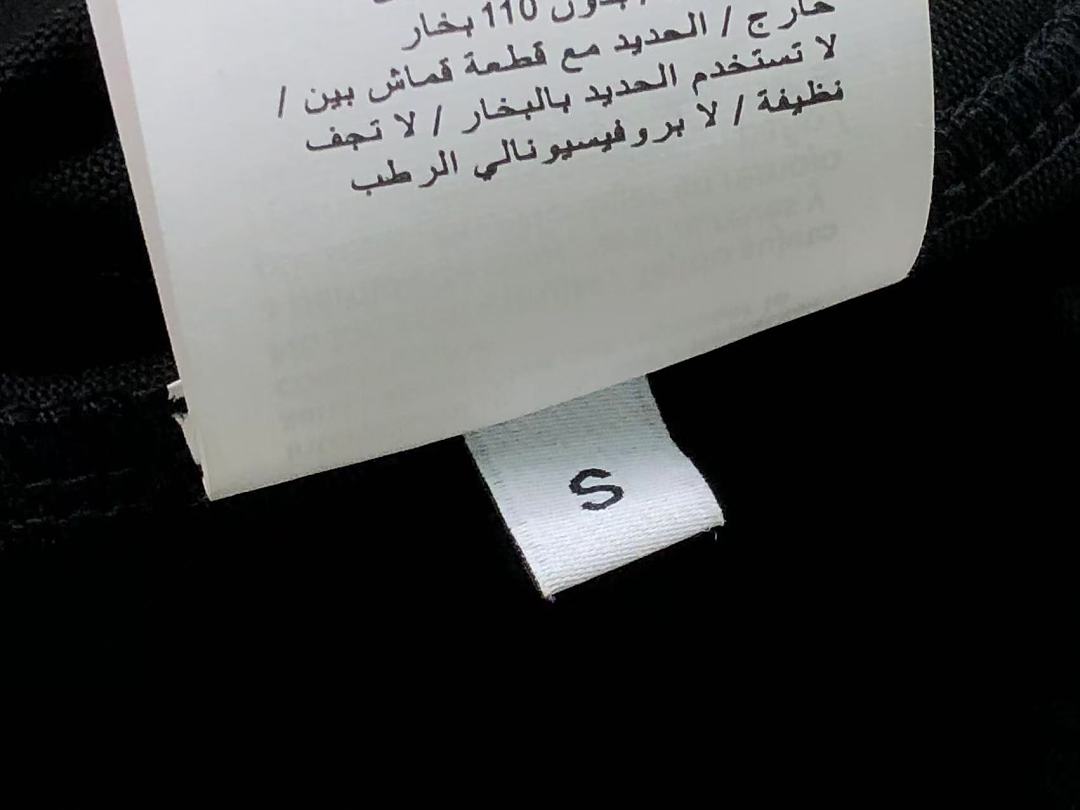 بدون 110 بخار
خارج / الحديد مع قطعة قماش بين /
لا تستخدم الحديد بالبخار / لا تجف
نظيفة / لا بروفيسيونالي الرطب
S